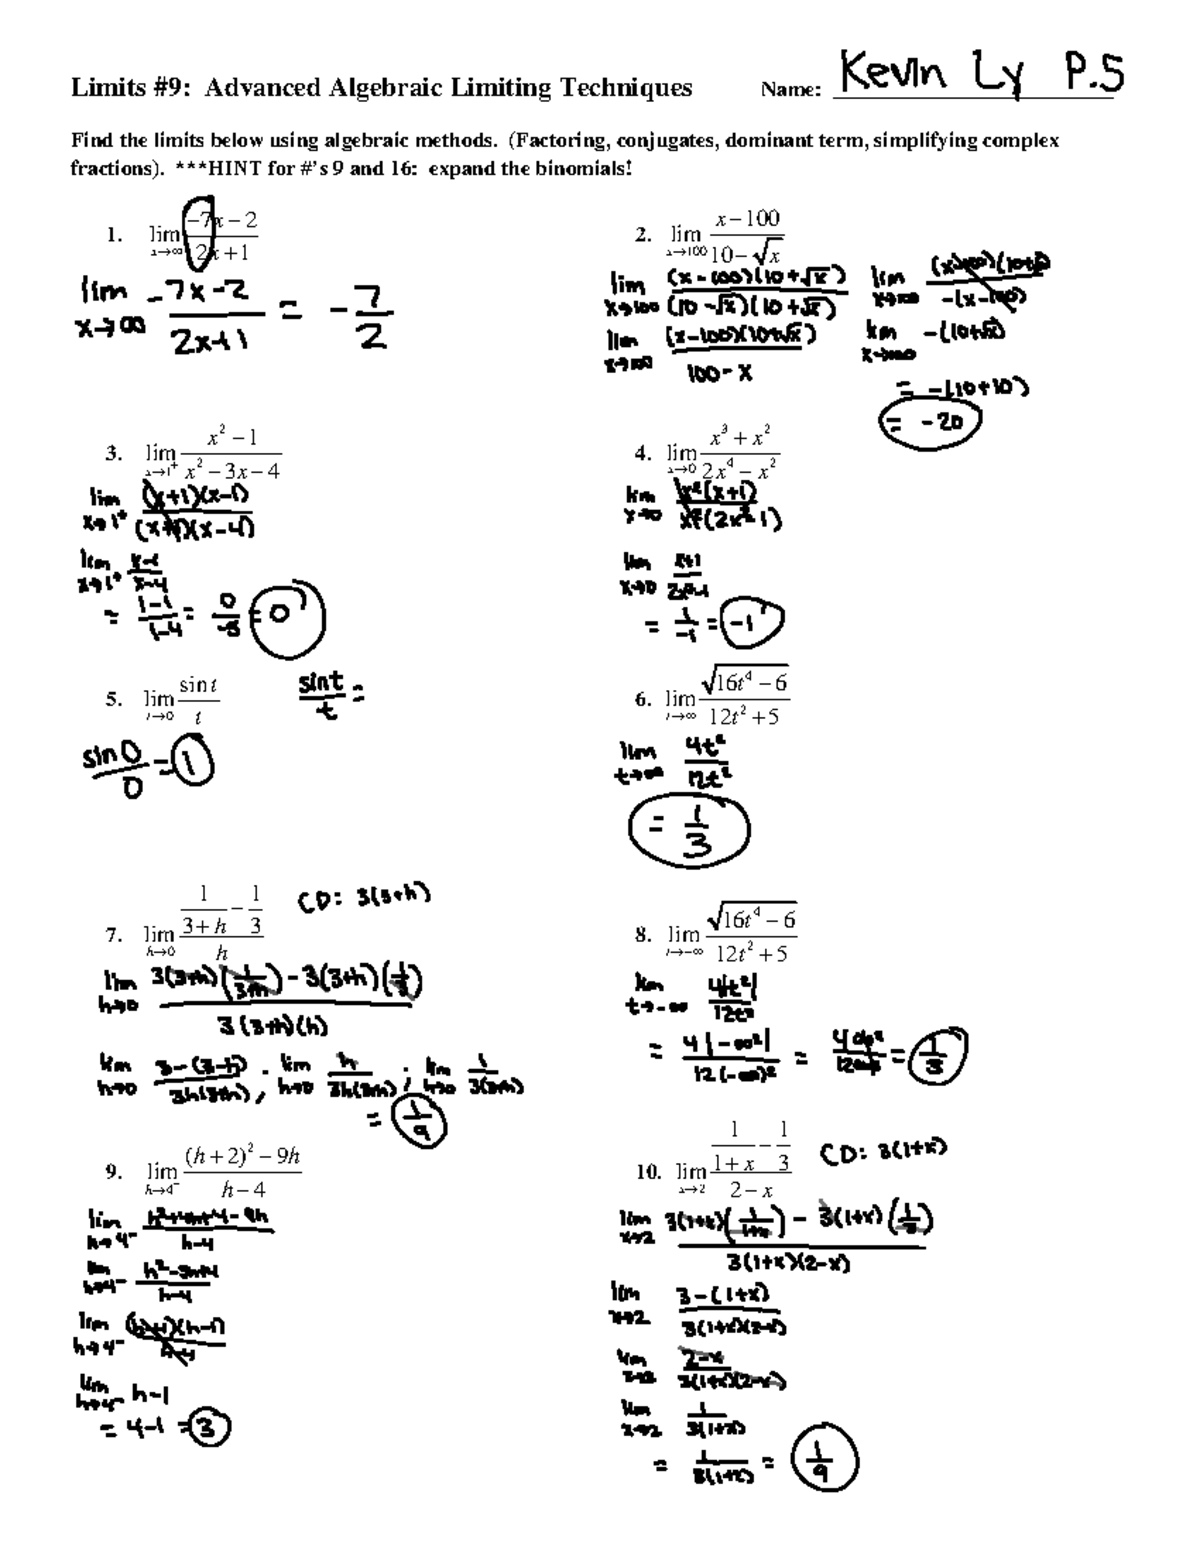 Limits #9: Advanced Algebraic Limiting Techniques Name: Kevin Ly P.5
Find the limits below using algebraic methods. (Factoring, conjugates, dominant term, simplifying complex
fractions). ***HINT for #'s 9 and 16: expand the binomials!
1. lim x→∞ (-7x-2)/(2x+1)
lim x→∞ (-7x-2)/(2x+1) = -7/2
2. lim x→100 (x-100)/(10-√x)
lim x→100 (x-100)(10+√x)/(10-√x)(10+√x)
lim x→100 (x-100)(10+√x)/(100-x)
lim x→100 (x-100)(10+√x)/-(x-100)
lim x→100 -(10+√x)
= -(10+10)
= -20
3. lim x→1⁺ (x²-1)/(x²-3x-4)
lim x→1⁺ (x+1)(x-1)/(x+1)(x-4)
lim x→1⁺ (x-1)/(x-4)
= (1-1)/(1-4) = 0/-3 = 0
4. lim x→0 (x³+x²)/(2x⁴-x²)
lim x→0 x²(x+1)/x²(2x²-1)
lim x→0 (x+1)/(2x²-1)
= 1/-1 = -1
5. lim t→0 sin t/t
sint/t =
sin0/0 = 1
6. lim t→∞ √(16t⁴-6)/(12t²+5)
lim t→∞ 4t²/12t²
= 1/3
7. lim h→0 (1/(3+h) - 1/3)/h
CD: 3(3+h)
lim h→0 (3(3+h)(1/(3+h)) - 3(3+h)(1/3))/(3(3+h)(h))
lim h→0 (3-(3-h))/3h(3+h), lim h→0 h/3h(3+h); lim h→0 1/3(3+h)
= 1/9
8. lim t→-∞ √(16t⁴-6)/(12t²+5)
lim t→-∞ 4|t²|/12t²
= 4|-∞²|/12(-∞)² = 4∞²/12∞² = 1/3
9. lim h→4⁻ ((h+2)²-9h)/(h-4)
lim h→4⁻ (h²+4h+4-9h)/(h-4)
lim h→4⁻ (h²-5h+4)/(h-4)
lim h→4⁻ (h-4)(h-1)/(h-4)
lim h→4⁻ h-1
= 4-1 = 3
10. lim x→2 (1/(1+x) - 1/3)/(2-x)
CD: 3(1+x)
lim x→2 (3(1+x)(1/(1+x)) - 3(1+x)(1/3))/(3(1+x)(2-x))
lim x→2 (3-(1+x))/(3(1+x)(2-x))
lim x→2 (2-x)/(3(1+x)(2-x))
lim x→2 1/3(1+x)
= 1/3(1+x) = 1/9